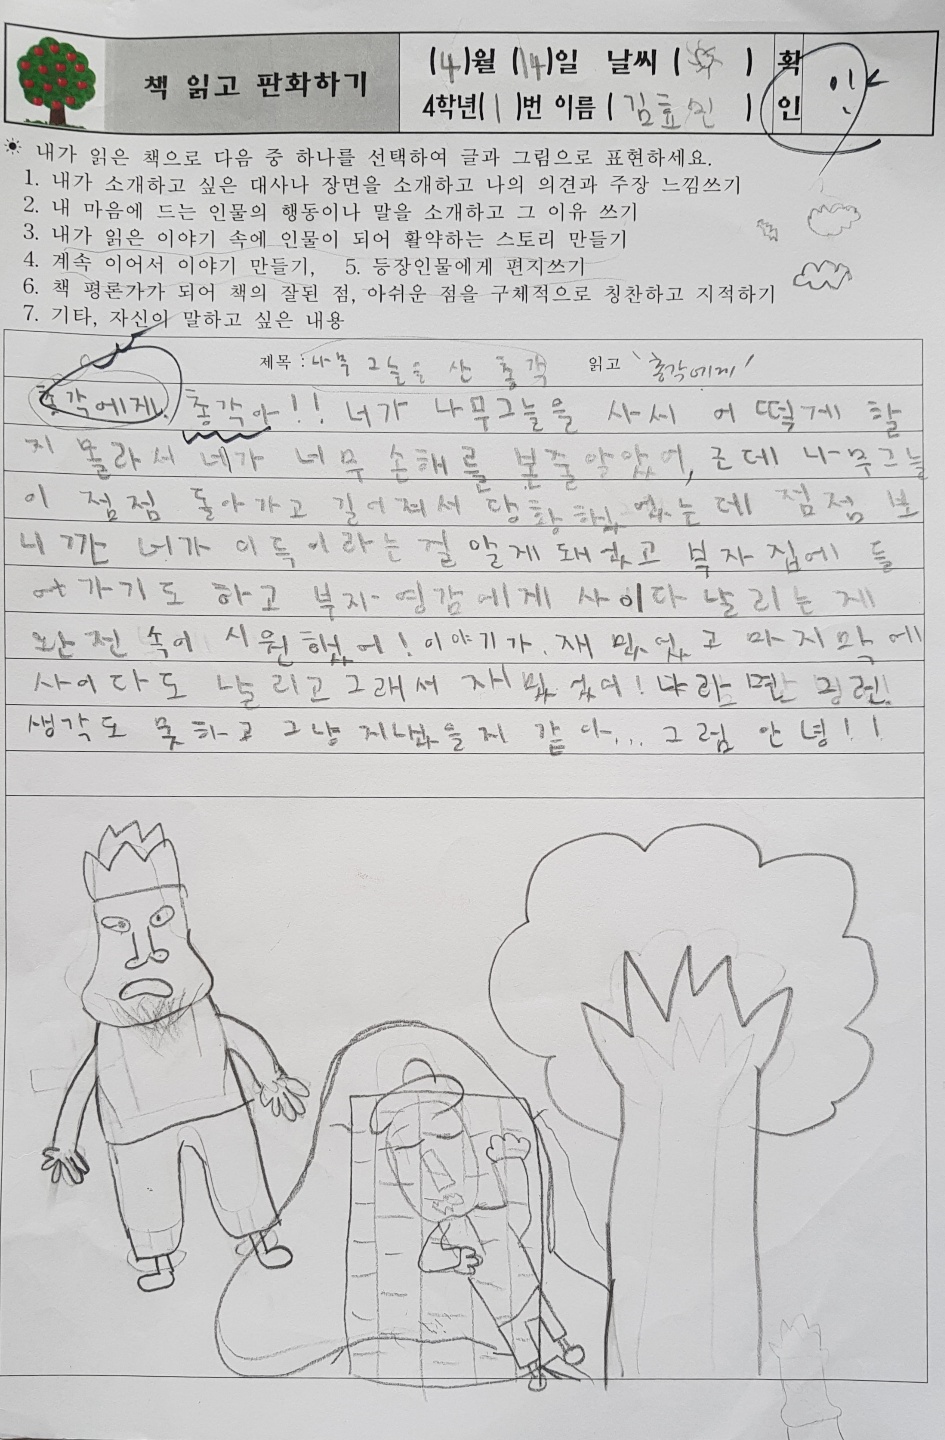 책 읽고 판화하기
(4)월 (14)일 날씨 ( ) 확인 인
4학년(1)번 이름 (김효민)
내가 읽은 책으로 다음 중 하나를 선택하여 글과 그림으로 표현하세요.
1. 내가 소개하고 싶은 대사나 장면을 소개하고 나의 의견과 주장 느낌쓰기
2. 내 마음에 드는 인물의 행동이나 말을 소개하고 그 이유 쓰기
3. 내가 읽은 이야기 속에 인물이 되어 활약하는 스토리 만들기
4. 계속 이어서 이야기 만들기, 5. 등장인물에게 편지쓰기
6. 책 평론가가 되어 책의 잘된 점, 아쉬운 점을 구체적으로 칭찬하고 지적하기
7. 기타, 자신이 말하고 싶은 내용
제목 : 나무 그늘을 산 총각 읽고 '총각에게'
총각에게. 총각아!! 너가 나무그늘을 사서 어떻게 할
지 몰라서 네가 너무 손해를 본줄알았어, 근데 나무그늘
이 점점 돌아가고 길어져서 당황했는데 점점 보
니깐 너가 이득이라는 걸 알게 돼었고 부자집에 들
어가기도 하고 부자 영감에게 사이다 날리는 게
완전 속이 시원했어! 이야기가 재밌었고 마지막에
사이다도 날리고 그래서 재밌었어! 나라면 그런
생각도 못하고 그냥 지냈을지 같아... 그럼 안녕!!